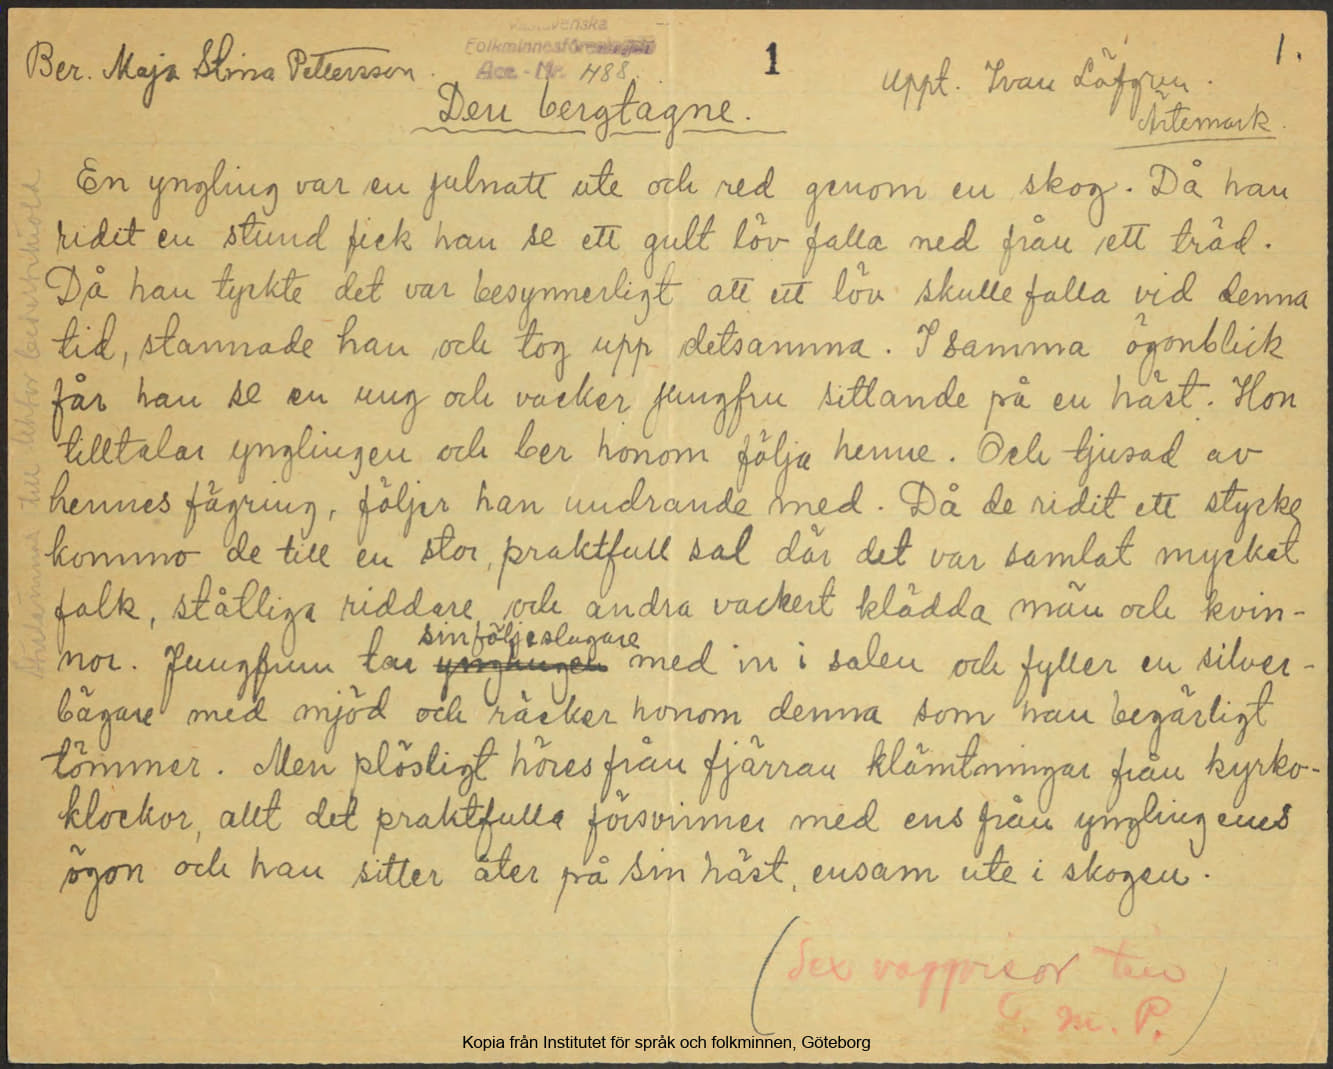 Västsvenska
Folkminnesföreningen
Acc - Nr. 488.
1
1.
Ber. Maja Stina Pettersson.
Uppt. Ivan Löfgren.
Ärtemark.
Den bergtagne.
En yngling var en julnatt ute och red genom en skog. Då han
ridit en stund fick han se ett gult löv falla ned från ett träd.
Då han tyckte det var besynnerligt att ett löv skulle falla vid denna
tid, stannade han och tog upp detsamma. I samma ögonblick
får han se en ung och vacker jungfru sittande på en häst. Hon
tilltalar ynglingen och ber honom följa henne. Och tjusad av
hennes fägring, följer han undrande med. Då de ridit ett stycke
kommo de till en stor, praktfull sal där det var samlat mycket
folk, ståtliga riddare och andra vackert klädda män och kvin-
nor. Jungfrun tar ynglingen sin följeslagare med in i salen och fyller en silver-
bägare med mjöd och räcker honom denna som han begärligt
tömmer. Men plösligt höres från fjärran klämtningar från kyrko-
klockor, allt det praktfulla försvinner med ens från ynglingenes
ögon och han sitter åter på sin häst, ensam ute i skogen.
(Sex vaggvisor till
C. M. P.)
Kopia från Institutet för språk och folkminnen, Göteborg